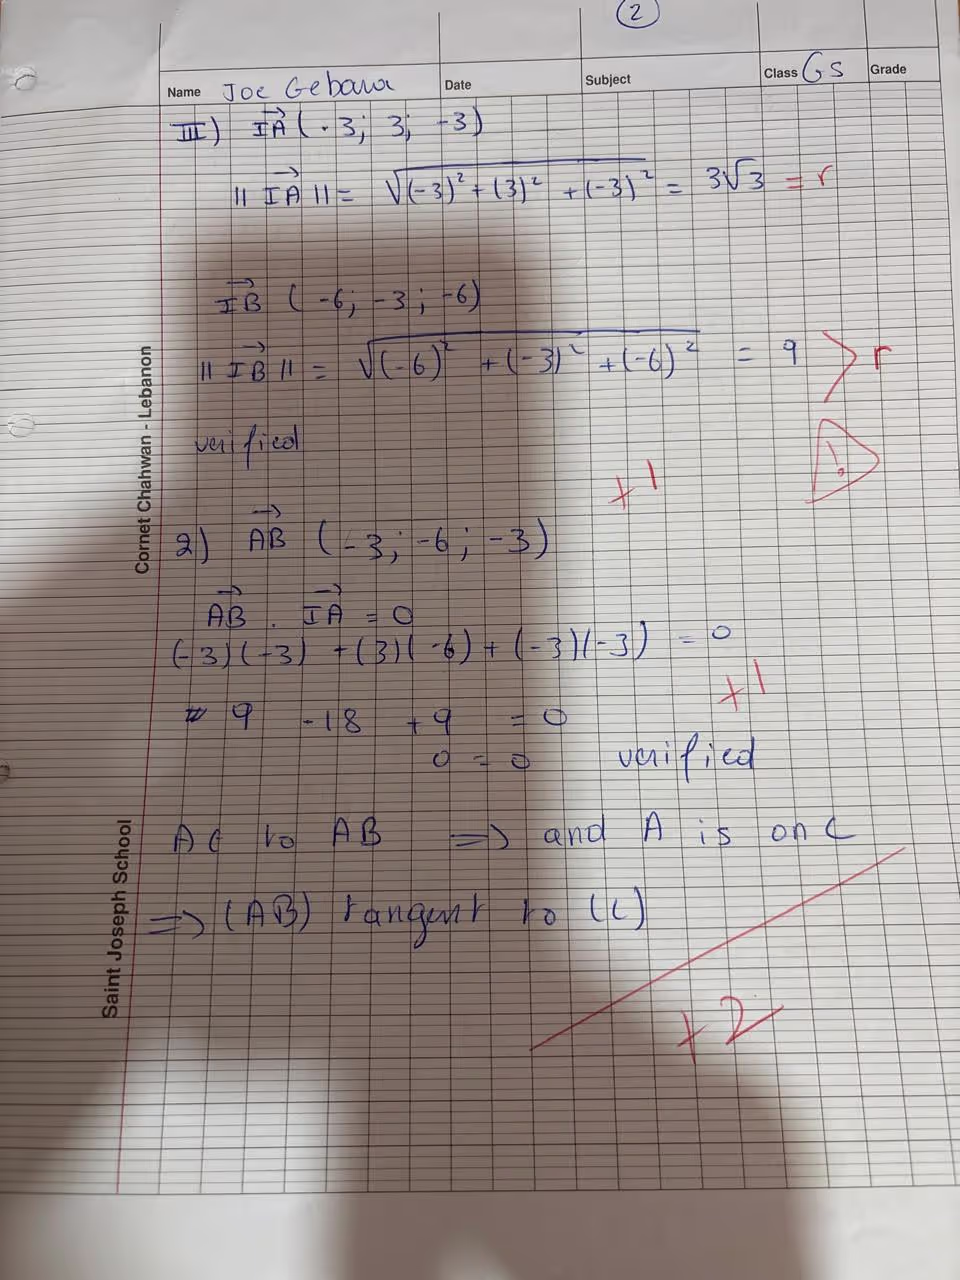 2
Name Joe Gebara Date Subject Class GS Grade
III) IA (-3; 3; -3)
|| IA || = √(-3)² + (3)² + (-3)² = 3√3 = r
IB (-6; -3; -6)
|| IB || = √(-6)² + (-3)² + (-6)² = 9 > r
verified
!
+1
2) AB (-3; -6; -3)
AB . IA = 0
(-3)(-3) + (3)(-6) + (-3)(-3) = 0
+1
9 -18 +9 = 0
0 = 0 verified
A ∈ to AB => and A is on C
=> (AB) tangent to (C)
+2
Cornet Chahwan - Lebanon
Saint Joseph School